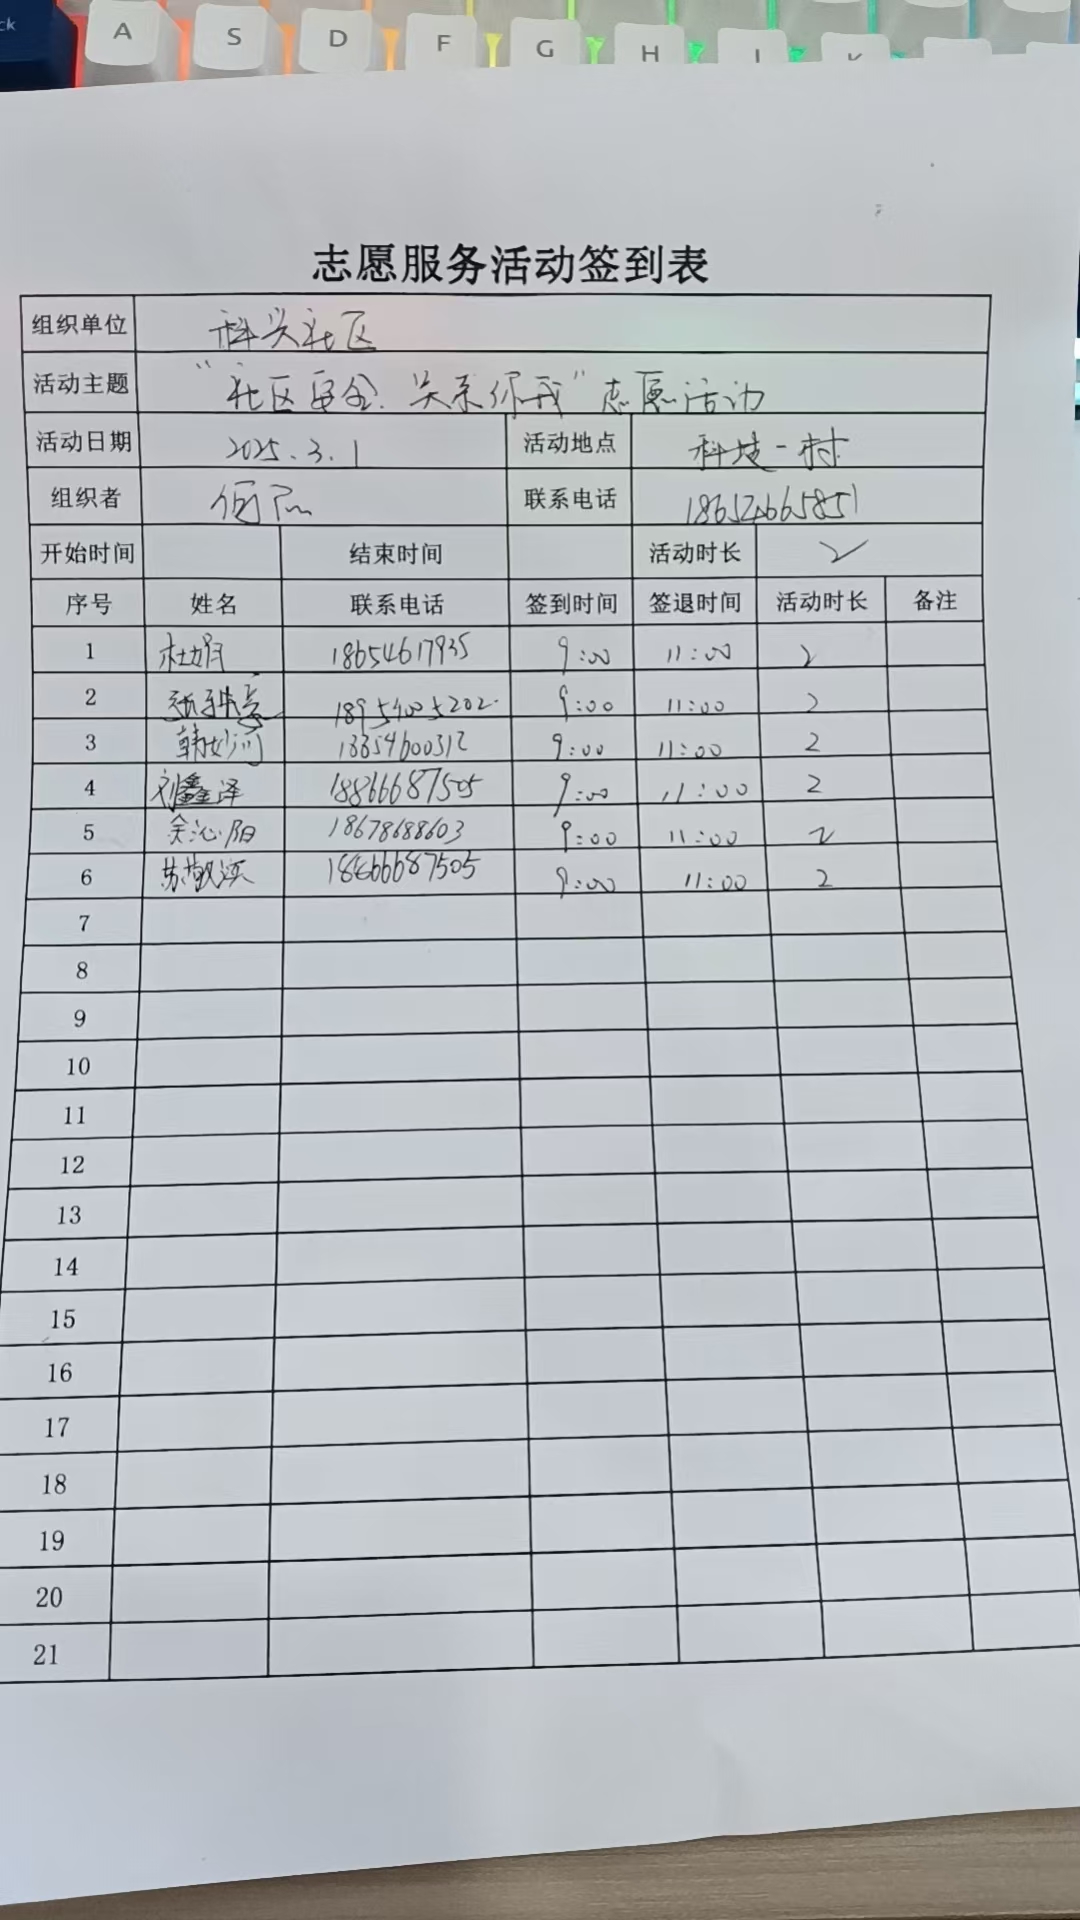 A S D F G H J K
志愿服务活动签到表
组织单位 科兴社区
活动主题 "社区安全、关系你我"志愿活动
活动日期 2025.3.1 活动地点 科技一村
组织者 联系电话 18654665851
开始时间 结束时间 活动时长 2
序号 姓名 联系电话 签到时间 签退时间 活动时长 备注
1 杜娟 18654617935 9:00 11:00 2
2 18954005202 9:00 11:00 2
3 韩妙河 13354600312 9:00 11:00 2
4 刘鑫泽 18866687505 9:00 11:00 2
5 余沁阳 18678688603 9:00 11:00 2
6 18866687505 9:00 11:00 2
7
8
9
10
11
12
13
14
15
16
17
18
19
20
21